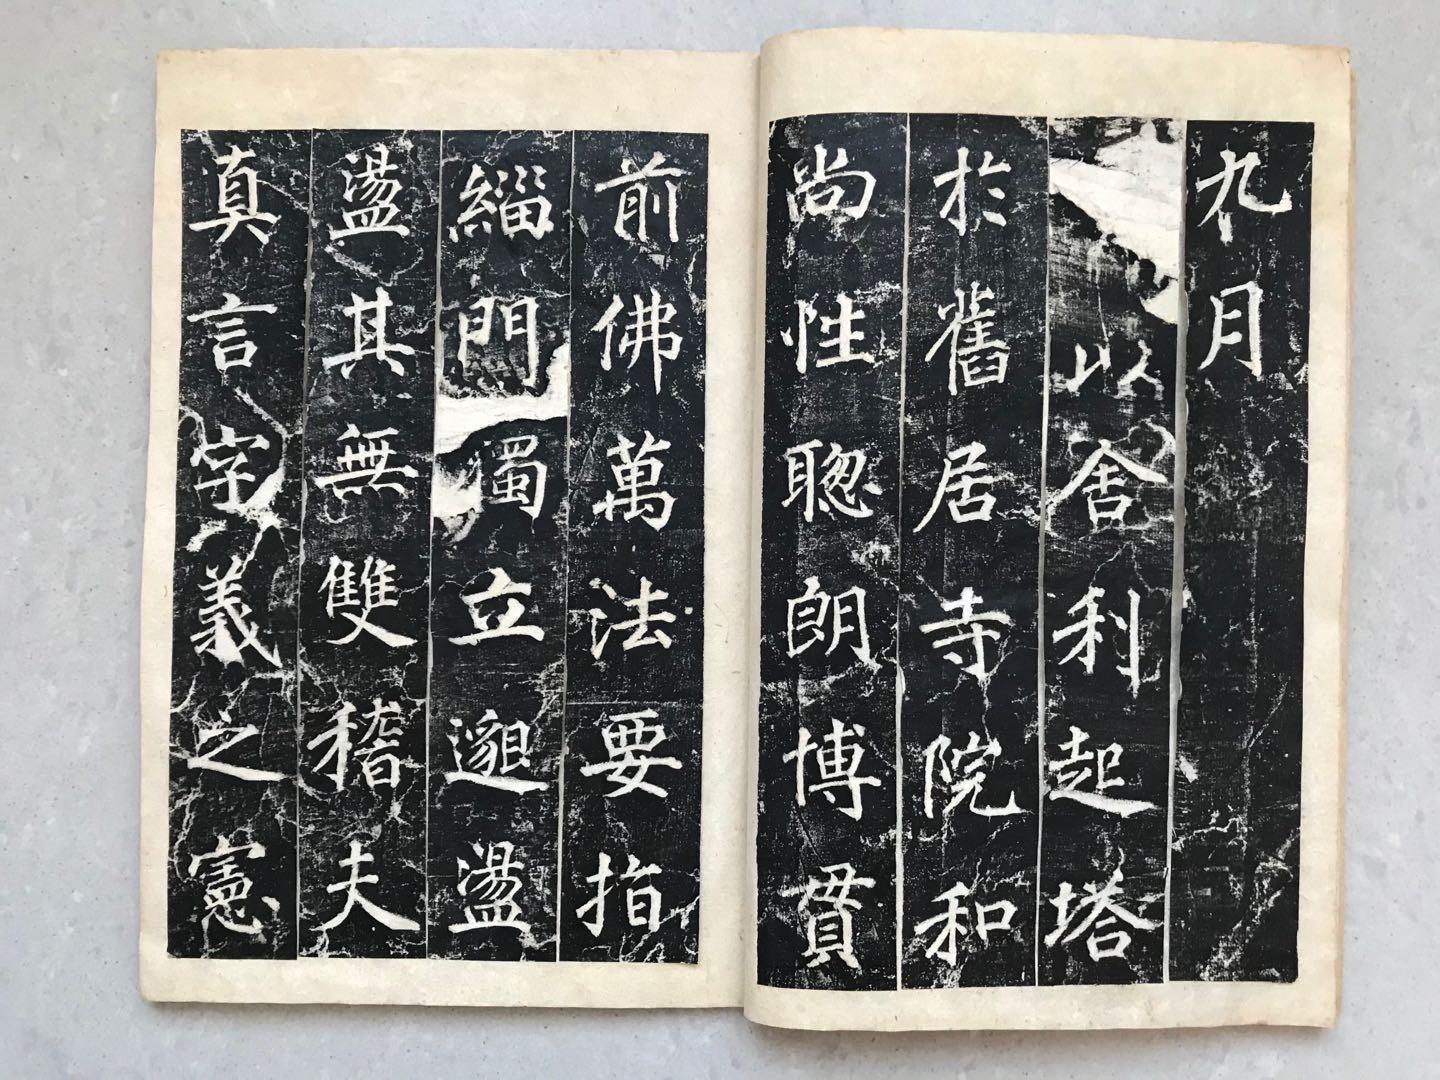 九月
以舍利起塔
於舊居寺院和
尚性聰朗博貫
前佛萬法要指
緇門獨立邈盪
盪其無雙稽夫
真言字義之憲